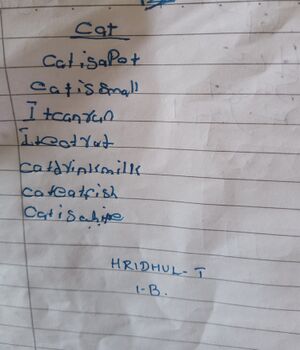 Cat
CatisaPet
Catissmall
Itcanrun
Iteatrat
catdrinkmilk
cateatfish
HRIDHUL-T
1-B.